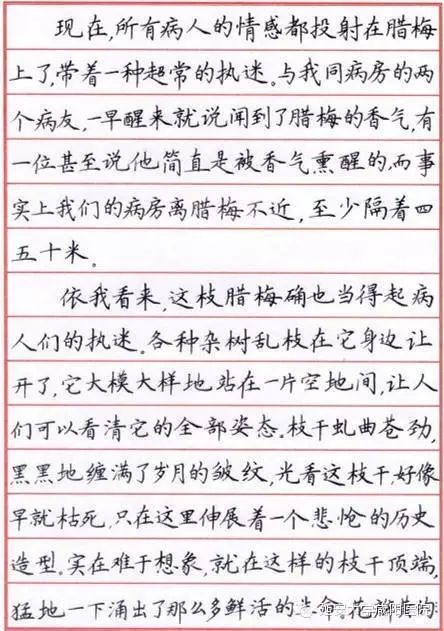 现在,所有病人的情感都投射在腊梅
上了,带着一种超常的执迷。与我同病房的两
个病友,一早醒来就说闻到了腊梅的香气,有
一位甚至说他简直是被香气熏醒的,而事
实上我们的病房离腊梅不近,至少隔着四
五十米。
依我看来,这枝腊梅确也当得起病
人们的执迷。各种杂树乱枝在它身边让
开了,它大模大样地站在一片空地间,让人
们可以看清它的全部姿态。枝干虬曲苍劲,
黑黑地缠满了岁月的皱纹,光看这枝干,好像
早就枯死,只在这里伸展着一个悲怆的历史
造型。实在难于想象,就在这样的枝干顶端,
猛地一下涌出了那么多鲜活的生命。花瓣黄的